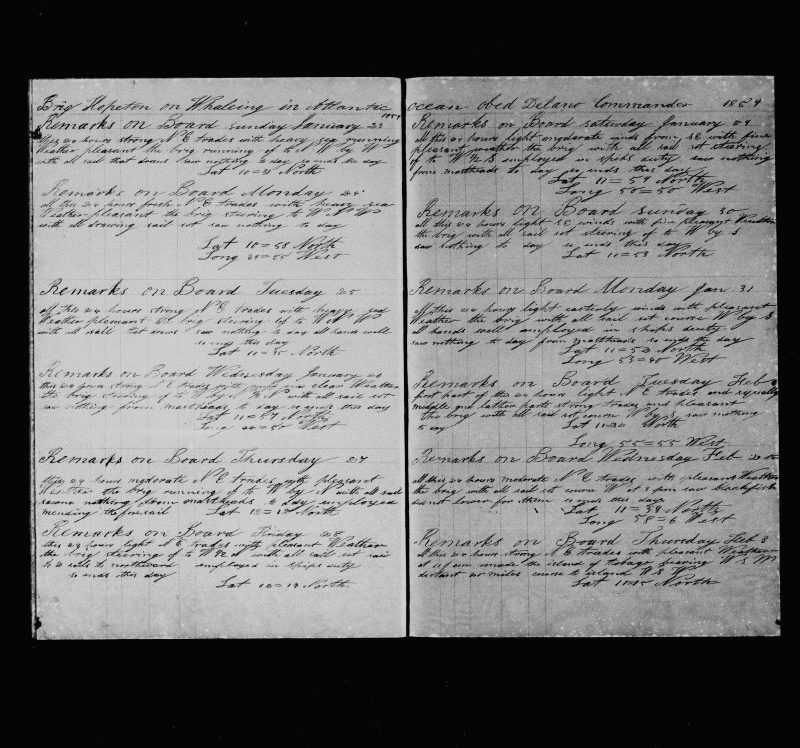 Brig Hopeton on Whaleing in Atlantic
1859
Remarks on Board Sunday January 23
this 24 hours strong N E trades with heavy sea running
Weather pleasant the brig running of to W by W
with all sail that draws saw nothing to day so ends this day
Lat 10=31 North
Remarks on Board Monday 24
all this 24 hours fresh N E trades with heavy sea
Weather pleasant the brig steering to W N W
with all drawing sail set saw nothing to day
Lat 10=58 North
Long West
Remarks on Board Tuesday 25
all this 24 hours strong N E trades with heavy sea
Weather pleasant the brig steering of to
with all sail saw nothing to day all hands well
so ends this day
Lat 11=35 North
Remarks on Board Wednesday January 26
this 24 hours strong N E trades with clear Weather
the brig steering of to W by N with all sail set
saw nothing from mastheads to day so ends this day
Lat 11=57 North
Long =50 West
Remarks on Board Thursday 27
this 24 hours moderate N E trades with pleasant
Weather the brig running of to W by N with all sail
sawe nothing from mastheads to day employed
mending the foresail Lat 12=12 North
Remarks on Board Friday 28
this 24 hours light N E trades with pleasant Weather
the brig steering of to with all sail set
2 sails to northward employed in ships duty
so ends this day
Lat 12=19 North
ocean Obed Delano Commander 1859
Remarks on Board saturday January 29
all this 24 hours light moderate winds from SE with fine
pleasant weather the brig with all sail set steering
of to employed in ships duty saw nothing
from mastheads to day so ends this day
Lat 11=59 North
Long 50=50 West
Remarks on Board Sunday 30
all this 24 hours light SE winds with fine pleasant Weather
the brig with all sail set steering of to W by S
saw nothing to day so ends this day
Lat 11=53 North
Remarks on Board Monday Jan 31
all this 24 hours light easterly winds with pleasant
Weather the brig with all sail set course W by S
all hands well employed in ships duty
saw nothing to day from mastheads so ends this day
Lat 11=52 North
Long 53=40 West
Remarks on Board Tuesday Feb
first part of this 24 hours light N E trades and squally
middle and latter parts strong trades and pleasant
the brig with all sail set course W by S saw nothing
to day Lat 11=32 North
Long 55=55 West
Remarks on Board Wednesday Feb
All this 24 hours moderate N E trades with pleasant Weather
the brig with all sail set course W at 3 pm saw blackfish
did not lower for them so ends this day
Lat 11=39 North
Long 58=6 West
Remarks on Board Thursday Feb 3
all this 24 hours strong N E trades with pleasant Weather
at 11 am made the island of tobago bearing W S W
distant 20 miles course to island W S W
Lat 11=15 North